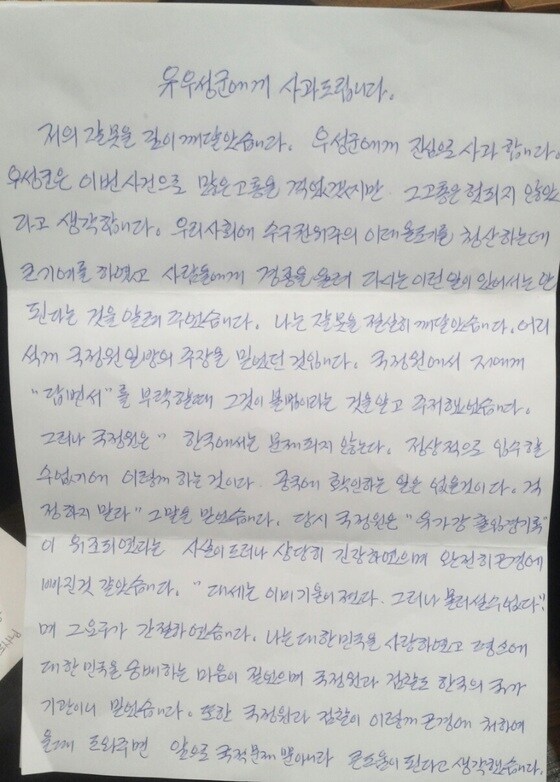 유우성군에게 사과드립니다.
저의 잘못을 깊이 깨달았습니다. 우성군에게 진심으로 사과 합니다.
우성군은 이번사건으로 많은고통을 격었겠지만 그고통은 헛되지 않았
다고 생각합니다. 우리사회에 수구전위주의 이데올로기를 청산하는데
큰기여를 하였고 사람들에게 경종을 울려 다시는 이런일이 있어서는 안
된다는 것을 알려 주었습니다. 나는 잘못을 절실히 깨달았습니다. 어리
석게 국정원일방의 주장을 믿었던 것입니다. 국정원에서 저에게
"답변서"를 부탁할때 그것이 불법이라는 것을알고 주저했었습니다.
그러나 국정원은 " 한국에서는 문제되지 않는다. 정상적으로 입수할
수없기에 이렇게 하는 것이다. 중국에 확인하는 일은 없을것이다. 걱
정하지 말라" 그말을 믿었습니다. 당시 국정원은 "유가강 출입경기록"
이 위조되였다는 사실이드러나 상당히 긴장하였으며 완전히곤경에
빠진것 같았습니다. "대세는 이미기울어졌다. 그러나 물러설수없다"
며 그요구가 간절하였습니다. 나는대한민국을 사랑하였고 평소에
대한민국을 숭배하는 마음이 깊었으며 국정원과 검찰도 한국의 국가
기관이니 믿었습니다. 또한 국정원과 검찰이 이렇게 곤경에 처하여
올때 도와주면 앞으로 국적문제 뿐아니라 큰도움이 된다고 생각했습니다.